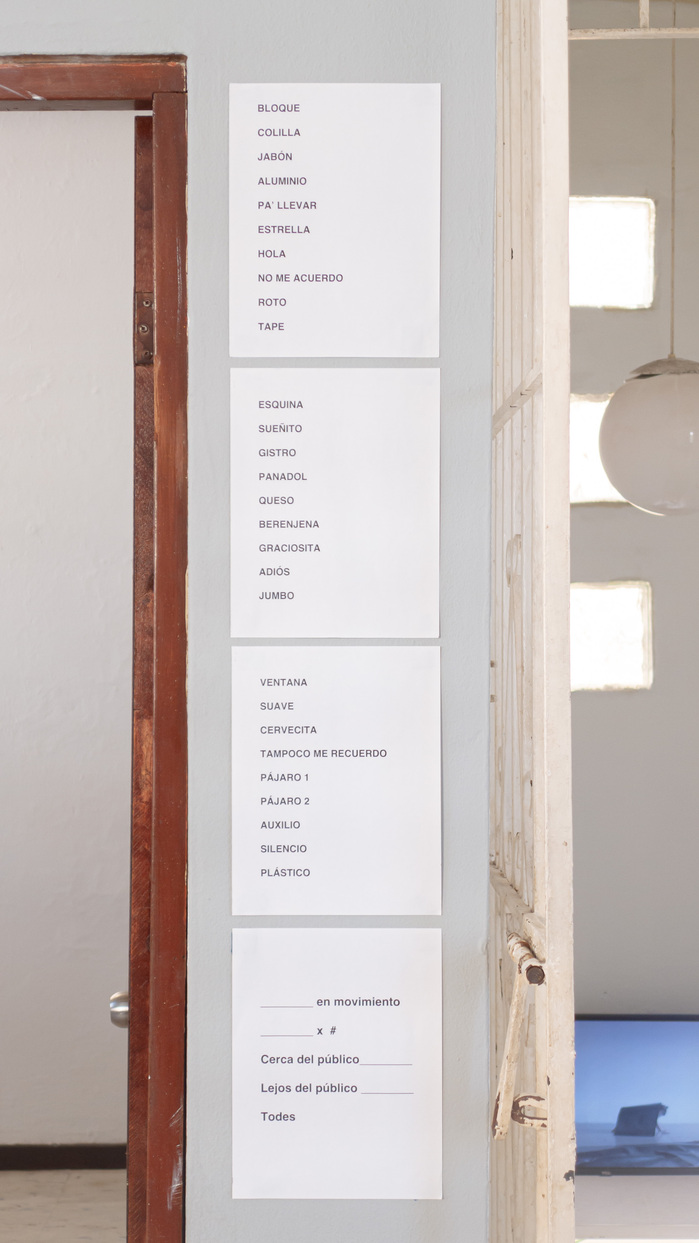 BLOQUE
COLILLA
JABÓN
ALUMINIO
PA' LLEVAR
ESTRELLA
HOLA
NO ME ACUERDO
ROTO
TAPE
ESQUINA
SUEÑITO
GISTRO
PANADOL
QUESO
BERENJENA
GRACIOSITA
ADIÓS
JUMBO
VENTANA
SUAVE
CERVECITA
TAMPOCO ME RECUERDO
PÁJARO 1
PÁJARO 2
AUXILIO
SILENCIO
PLÁSTICO
________ en movimiento
________ x #
Cerca del público________
Lejos del público ________
Todes